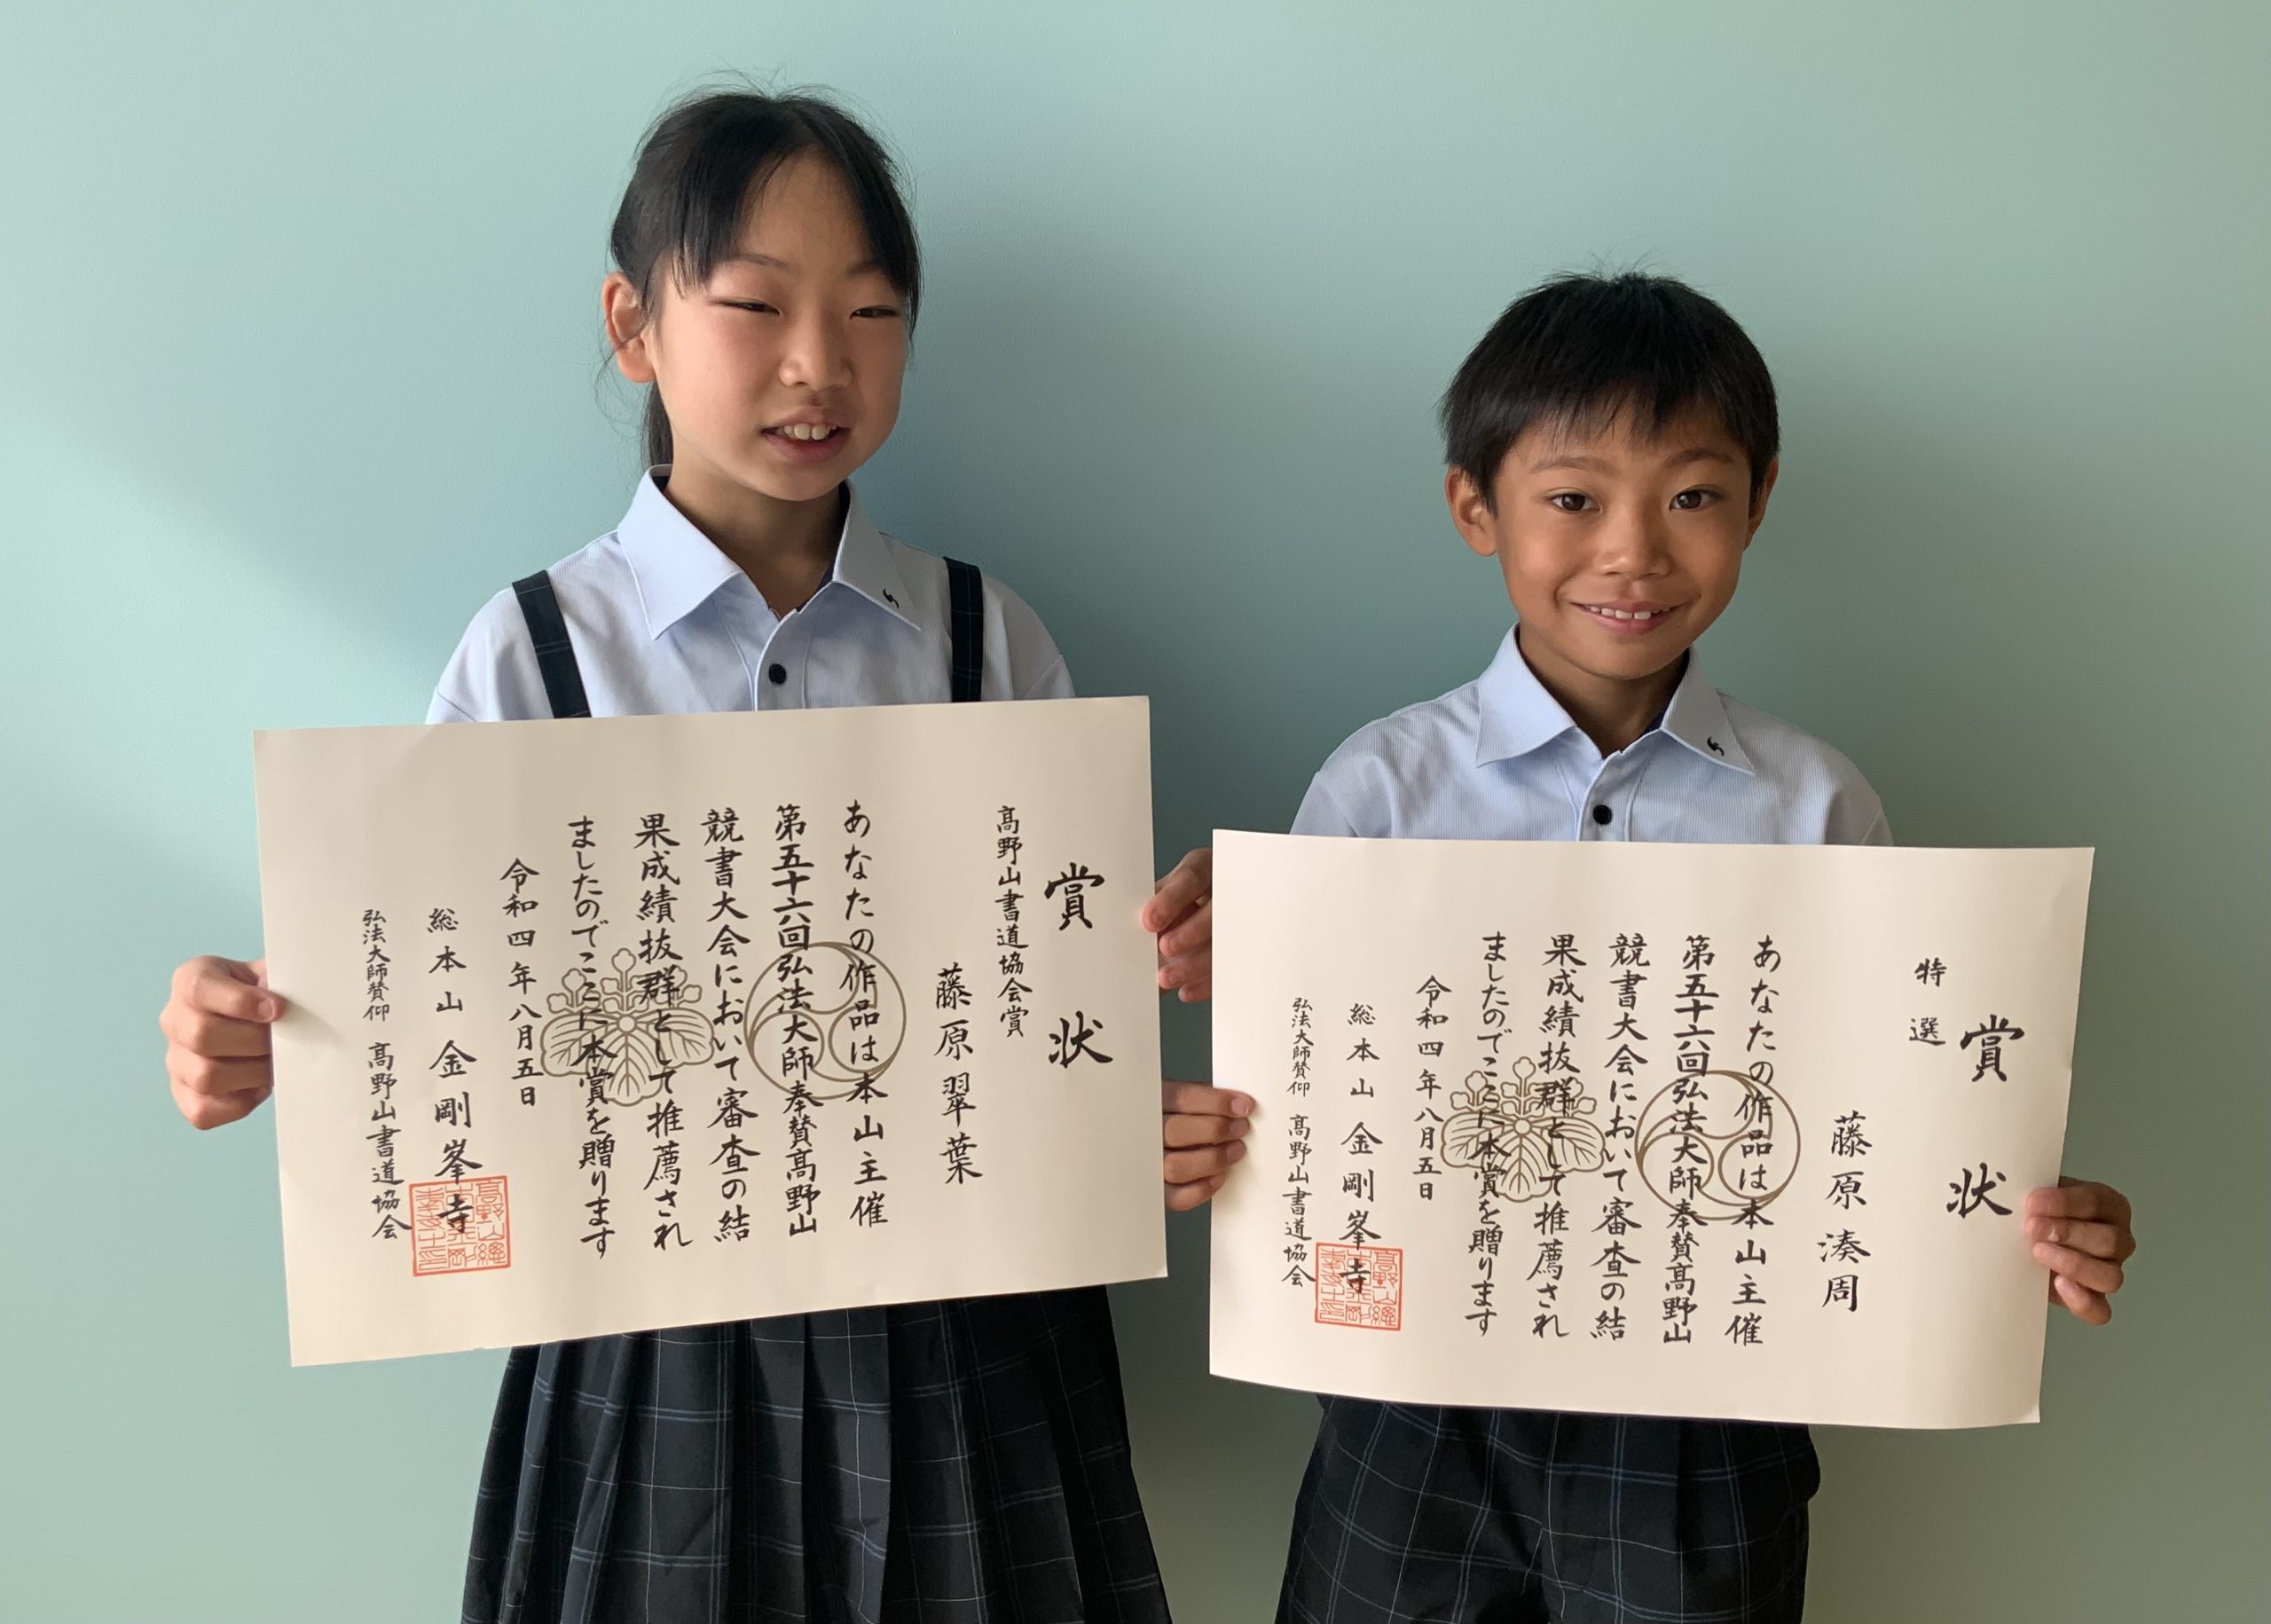 賞状
高野山書道協会賞
藤原翠葉
あなたの作品は本山主催
第五十六回弘法大師奉賛高野山
競書大会において審査の結
果成績抜群として推薦され
ましたのでここに本賞を贈ります
令和四年八月五日
総本山金剛峯寺
弘法大師賛仰 高野山書道協会
賞状
特選
藤原湊周
あなたの作品は本山主催
第五十六回弘法大師奉賛高野山
競書大会において審査の結
果成績抜群として推薦され
ましたのでここに本賞を贈ります
令和四年八月五日
総本山金剛峯寺
弘法大師賛仰 高野山書道協会